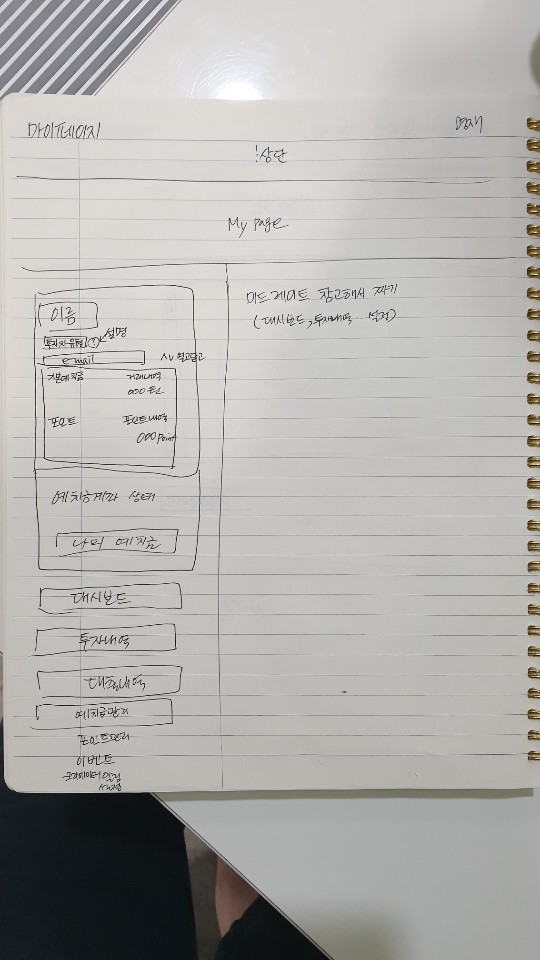 마이페이지
영재
상단
My page
이름
투자자유형 ? 설명
email
∧∨ 열고닫고
기본예치금 거래내역
000원
포인트 포인트내역
000 Point
예치금계좌 상태
나의 예치금
대시보드
투자내역
대출내역
예치금관리
포인트관리
이벤트
설정
미드레이트 참고해서 짜기
(대시보드, 투자내역 … 설정)